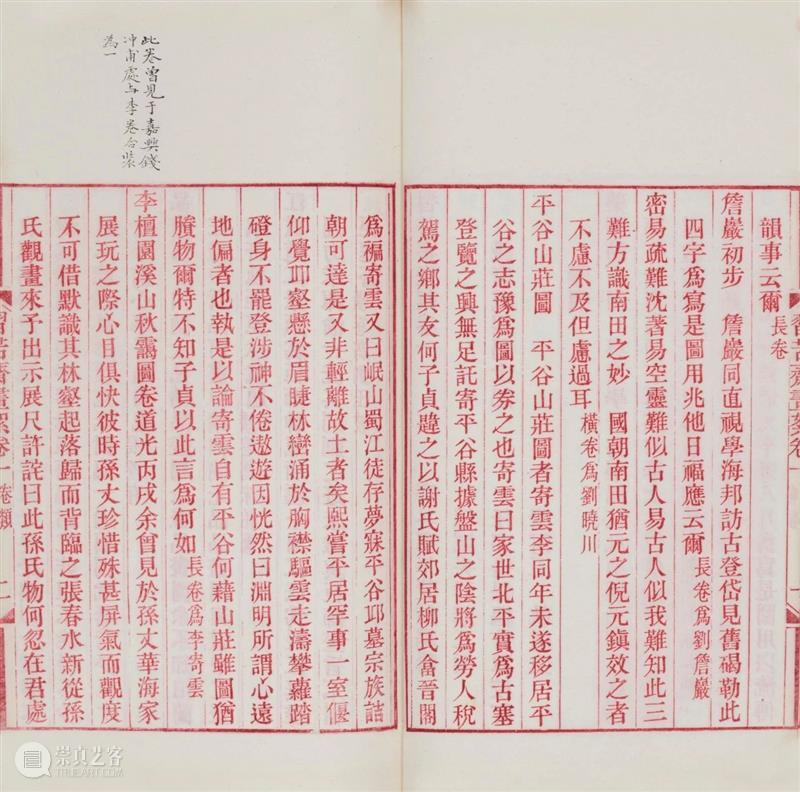 韻事云爾 長卷
詹巖初步 詹巖同直視學海邦訪古登岱見舊碣勒此
四字爲寫是圖用兆他日福應云爾 長卷爲劉詹巖
密易疏難沈著易空靈難似古人易古人似我難知此三
難方識南田之妙 國朝南田猶元之倪元鎮效之者
不慮不及但慮過耳 橫卷爲劉曉川
平谷山莊圖 平谷山莊圖者寄雲李同年未遂移居平
谷之志豫爲圖以券之也寄雲曰家世北平實爲古塞
登覽之興無足託寄平谷縣據盤山之陰將爲勞人稅
駕之鄉其友何子貞韙之以謝氏賦郊居柳氏畣晉閣
此卷曾見于嘉興錢
沖甫處与李卷合裝
爲一
爲褊寄雲又曰岷山蜀江徒存夢寐平谷邱墓宗族詰
朝可達是又非輕離故土者矣熙嘗平居罕事一室偃
仰覺邱壑懸於眉睫林巒涌於胸襟驅雲走濤攀蘿踏
磴身不罷登涉神不倦遨遊因恍然曰淵明所謂心遠
地偏者也執是以論寄雲自有平谷何藉山莊雖圖猶
賸物爾特不知子貞以此言爲何如 長卷爲李寄雲
李檀園溪山秋靄圖卷道光丙戌余曾見於孫丈華海家
展玩之際心目俱快彼時孫丈珍惜殊甚屏氣而觀度
不可借默識其林壑起落歸而背臨之張春水新從孫
氏觀畫來予出示展尺許詫曰此孫氏物何忍在君處
習苦齋畫絮卷一 卷類 二
崇真艺客
TRUEART.COM